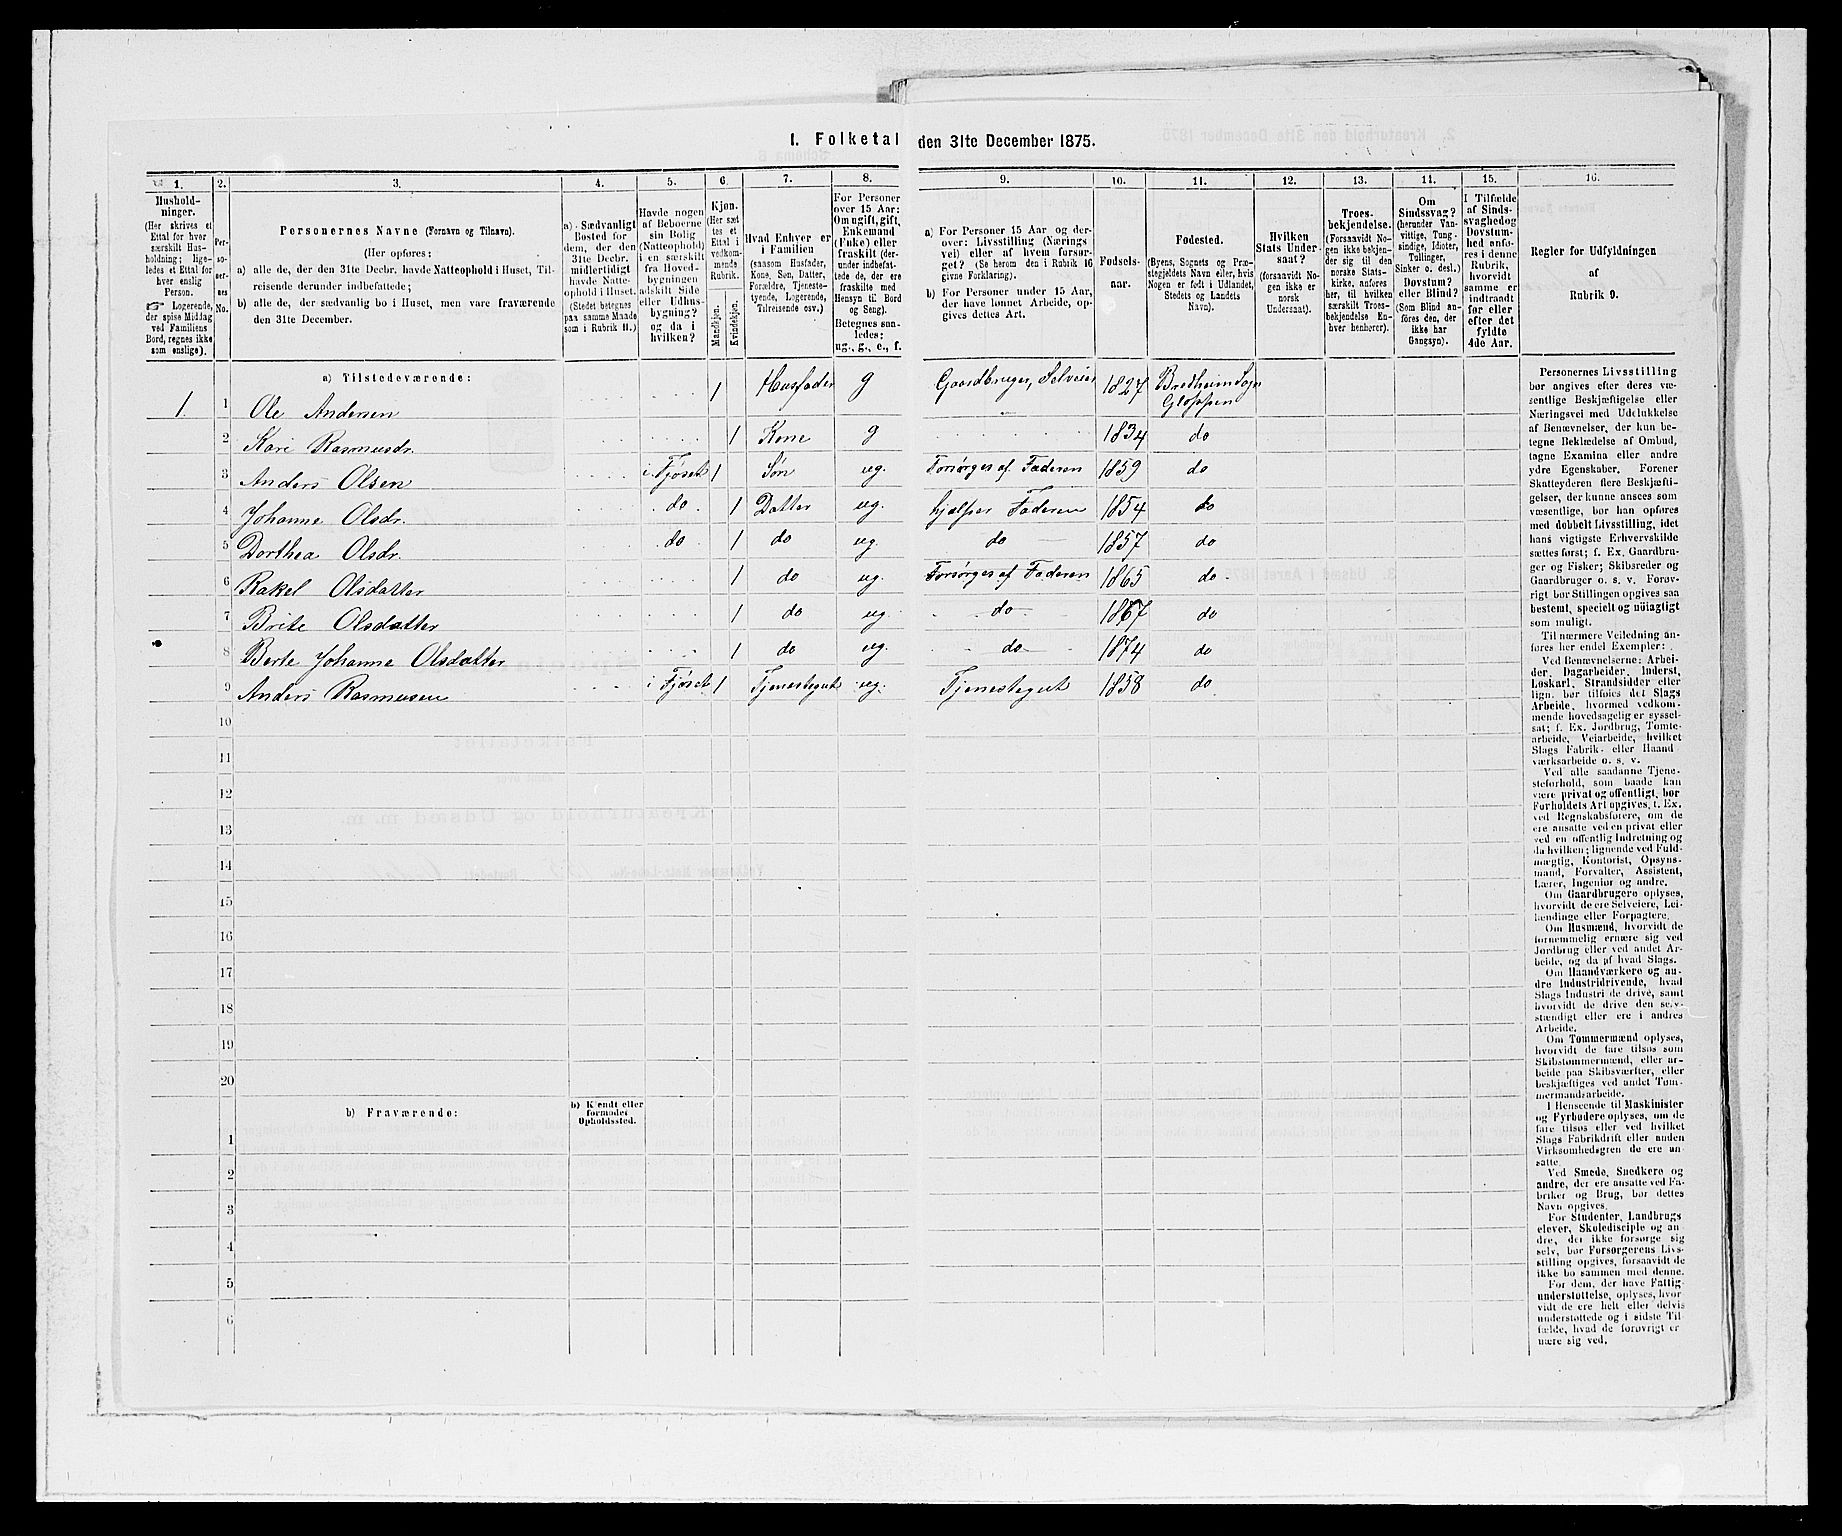 I. Folketal den 31te December 1875.
1. 2. 3. 4. 5. 6. 7. 8. 9. 10. 11. 12. 13. 14. 15. 16.
Hushold-
ninger.
(Her skrives et
Ettal for hver
særskilt Hus-
holdning; lige-
ledes et Ettal for
hver enslig
Person.
Logerende,
der spise Middag
ved Familiens
Bord, regnes ikke
som enslige).
Per-
so-
ner-
nes
No.
Personernes Navne (Fornavn og Tilnavn).
(Her opføres:
a) alle de, der den 31te Decbr. havde Natteophold i Huset, Til-
reisende derunder indbefattede;
b) alle de, der sædvanlig bo i Huset, men vare fraværende
den 31te December.
a) Sædvanligt
Bosted for
dem, der den
31te Decbr.
midlertidigt
havde Natte-
ophold i Huset.
(Stedet betegnes
paa samme Maade
som i Rubrik 11.)
Havde nogen
af Beboerne
sin Bolig
(Natteophold)
i en særskilt
fra Hoved-
bygningen
adskilt Side
eller Udhus-
bygning?
og da i
hvilken?
Kjøn.
(Her sæt-
tes et
Ettal i
vedkom-
mende
Rubrik.
Mandkjøn.
Kvindekjøn.
Hvad Enhver er
i Familien
(saasom Husfader,
Kone, Søn, Datter,
Forældre, Tjeneste-
tyende, Logerende,
Tilreisende osv.)
For Personer
over 15 Aar:
Om ugift, gift,
Enkemand
(Enke) eller
fraskilt (der-
under indbefat-
tede de, der ere
fraskilte med
Hensyn til Bord
og Seng).
Betegnes saa-
ledes:
ug., g., e., f.
a) For Personer 15 Aar og der-
over: Livsstilling (Nærings
vei) eller af hvem forsør-
get? (Se herom den i Rubrik 16
givne Forklaring).
b) For Personer under 15 Aar,
der have lønnet Arbeide, op-
gives dettes Art.
Fødsels-
aar.
Fødested.
(Byens, Sognets og Præ-
stegjeldets Navn eller, hvis
Nogen er født i Udlandet,
Stedets og Landets
Navn).
Hvilken
Stats Under-
saat?
(forsaavidt No-
gen ikke er
norsk
Undersaat).
Troes-
bekjendelse.
(Forsaavidt No-
gen ikke bekjen-
der sig til den
norske Stats-
kirke, anføres
her, til hvilken
særskilt Troes-
bekjendelse En-
hver henhører).
Om
Sindssvag?
(herunder Van-
vittige, Tung-
sindige, Idioter,
Tullinger,
Sinker o. desl.)
Døvstum?
eller Blind?
(Som Blind an-
føres den, der
ikke har
Gangsyn).
I Tilfælde
af Sinds-
svaghed og
Døvstum-
hed anfø-
res i denne
Rubrik,
hvorvidt
samme er
indtraadt
før eller
efter det
fyldte
4de Aar.
Regler for Udfyldningen
af
Rubrik 9.
a) Tilstedeværende:
1. 1 Ole Andersen 1 Husfader g Gaardbruger, Selveier 1827 Bredheim Sogn
Gloppen
2 Kari Rasmusdr. 1 Kone g 1834 do
3 Anders Olsen i Fjøset 1 Søn ug. Forsørges af Faderen 1859 do
4 Johanne Olsdr. do 1 Datter ug. hjælper Faderen 1854 do
5 Dorthea Olsdr. do 1 do ug. do 1857 do
6 Rakel Olsdatter 1 do ug. Forsørges af Faderen 1865 do
7 Brite Olsdatter 1 do ug. do 1867 do
8 Berte Johanne Olsdatter 1 do ug. do 1874 do
9 Anders Rasmusen i Fjøset 1 Tjenestegut ug. Tjenestegut 1858 do
10
11
12
13
14
15
16
17
18
19
20
b) Fraværende: b) Kjendt eller
formodet
Opholdssted.
1
2
3
4
5
6
Personernes Livsstilling
bør angives efter deres væ-
sentlige Beskjæftigelse eller
Næringsvei med Udelukkelse
af Benævnelser, der kun be-
tegne Beklædelse af Ombud,
tagne Examina eller andre
ydre Egenskaber. Forener
Skatteyderen flere Beskjæfti-
gelser, der kunne ansees som
væsentlige, bør han opføres
med dobbelt Livsstilling, idet
hans vigtigste Erhvervskilde
sættes først; f. Ex. Gaardbru-
ger og Fisker; Skibsreder og
Gaardbruger o. s. v. Forøv-
rigt bør Stillingen opgives saa
bestemt, specielt og nøiagtigt
som muligt.
Til nærmere Veiledning an-
føres her endel Exempler:
Ved Benævnelserne: Arbei-
der, Dagarbeider, Inderst,
Løskarl, Strandsidder eller
lign. bør tilføies det Slags
Arbeide, hvormed vedkom-
mende hovedsagelig er syssel-
sat; f. Ex. Jordbrug, Tømte-
arbeide, Veiarbeide, hvilket
Slags Fabrik- eller Haand-
værksarbeide o. s. v.
Ved alle saadanne Tjene-
steforhold, som baade kan
være privat og offentligt, bør
Forholdets Art opgives, t. Ex.
ved Regnskabsførere, om de
ere ansatte ved en privat eller
ved en offentlig Indretning og
da hvilken; lignende ved Fuld-
mægtig, Kontorist, Opsyns-
mand, Forvalter, Assistent,
Lærer, Ingeniør og andre.
Om Gaardbrugere oplyses,
hvorvidt de ere Selveiere, Lei-
lændinge eller Forpagtere.
Om Husmænd, hvorvidt de
fornemmelig ernære sig ved
Jordbrug eller ved andet Ar-
beide, og da af hvad Slags.
Om Haandværkere og an-
dre Industridrivende, hvad
Slags Industri de drive, samt
hvorvidt de drive den selv-
stændigt eller ere i andres
Arbeide.
Om Tømmermænd oplyses,
hvorvidt de fare tilsøs som
Skibstømmermænd, eller ar-
beide paa Skibsværfter, eller
beskjæftiges ved andet Tøm-
mermandsarbeide.
I Henseende til Maskinister
og Fyrbødere oplyses, om de
fare tilsøs eller ved hvilket
Slags Fabrikdrift eller anden
Virksomhedsgren de ere an-
satte.
Ved Smede, Snedkere og
andre, der ere ansatte ved Fa-
briker og Brug, bør dettes
Navn opgives.
For Studenter, Landbrugs
elever, Skoledisciple og an-
dre, der ikke forsørge sig
selv, bør Forsørgerens Livs-
stilling opgives, forsaavidt de
ikke bo sammen med denne.
For dem, der have Fattig-
understøttelse, oplyses, hvor-
vidt de ere helt eller delvis
understøttede og i sidste Til-
fælde, hvad de forøvrigt er-
nære sig ved.